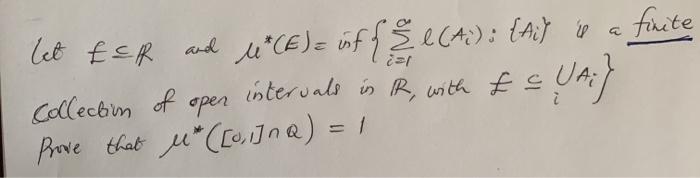 Let E ⊆ ℝ and μ*(E) = inf { ∑_{i=1}^{∞} l(A_i) : {A_i} is a finite
Collection of open intervals in ℝ, with E ⊆ ⋃_i A_i }
Prove that μ*([0,1]∩ℚ) = 1